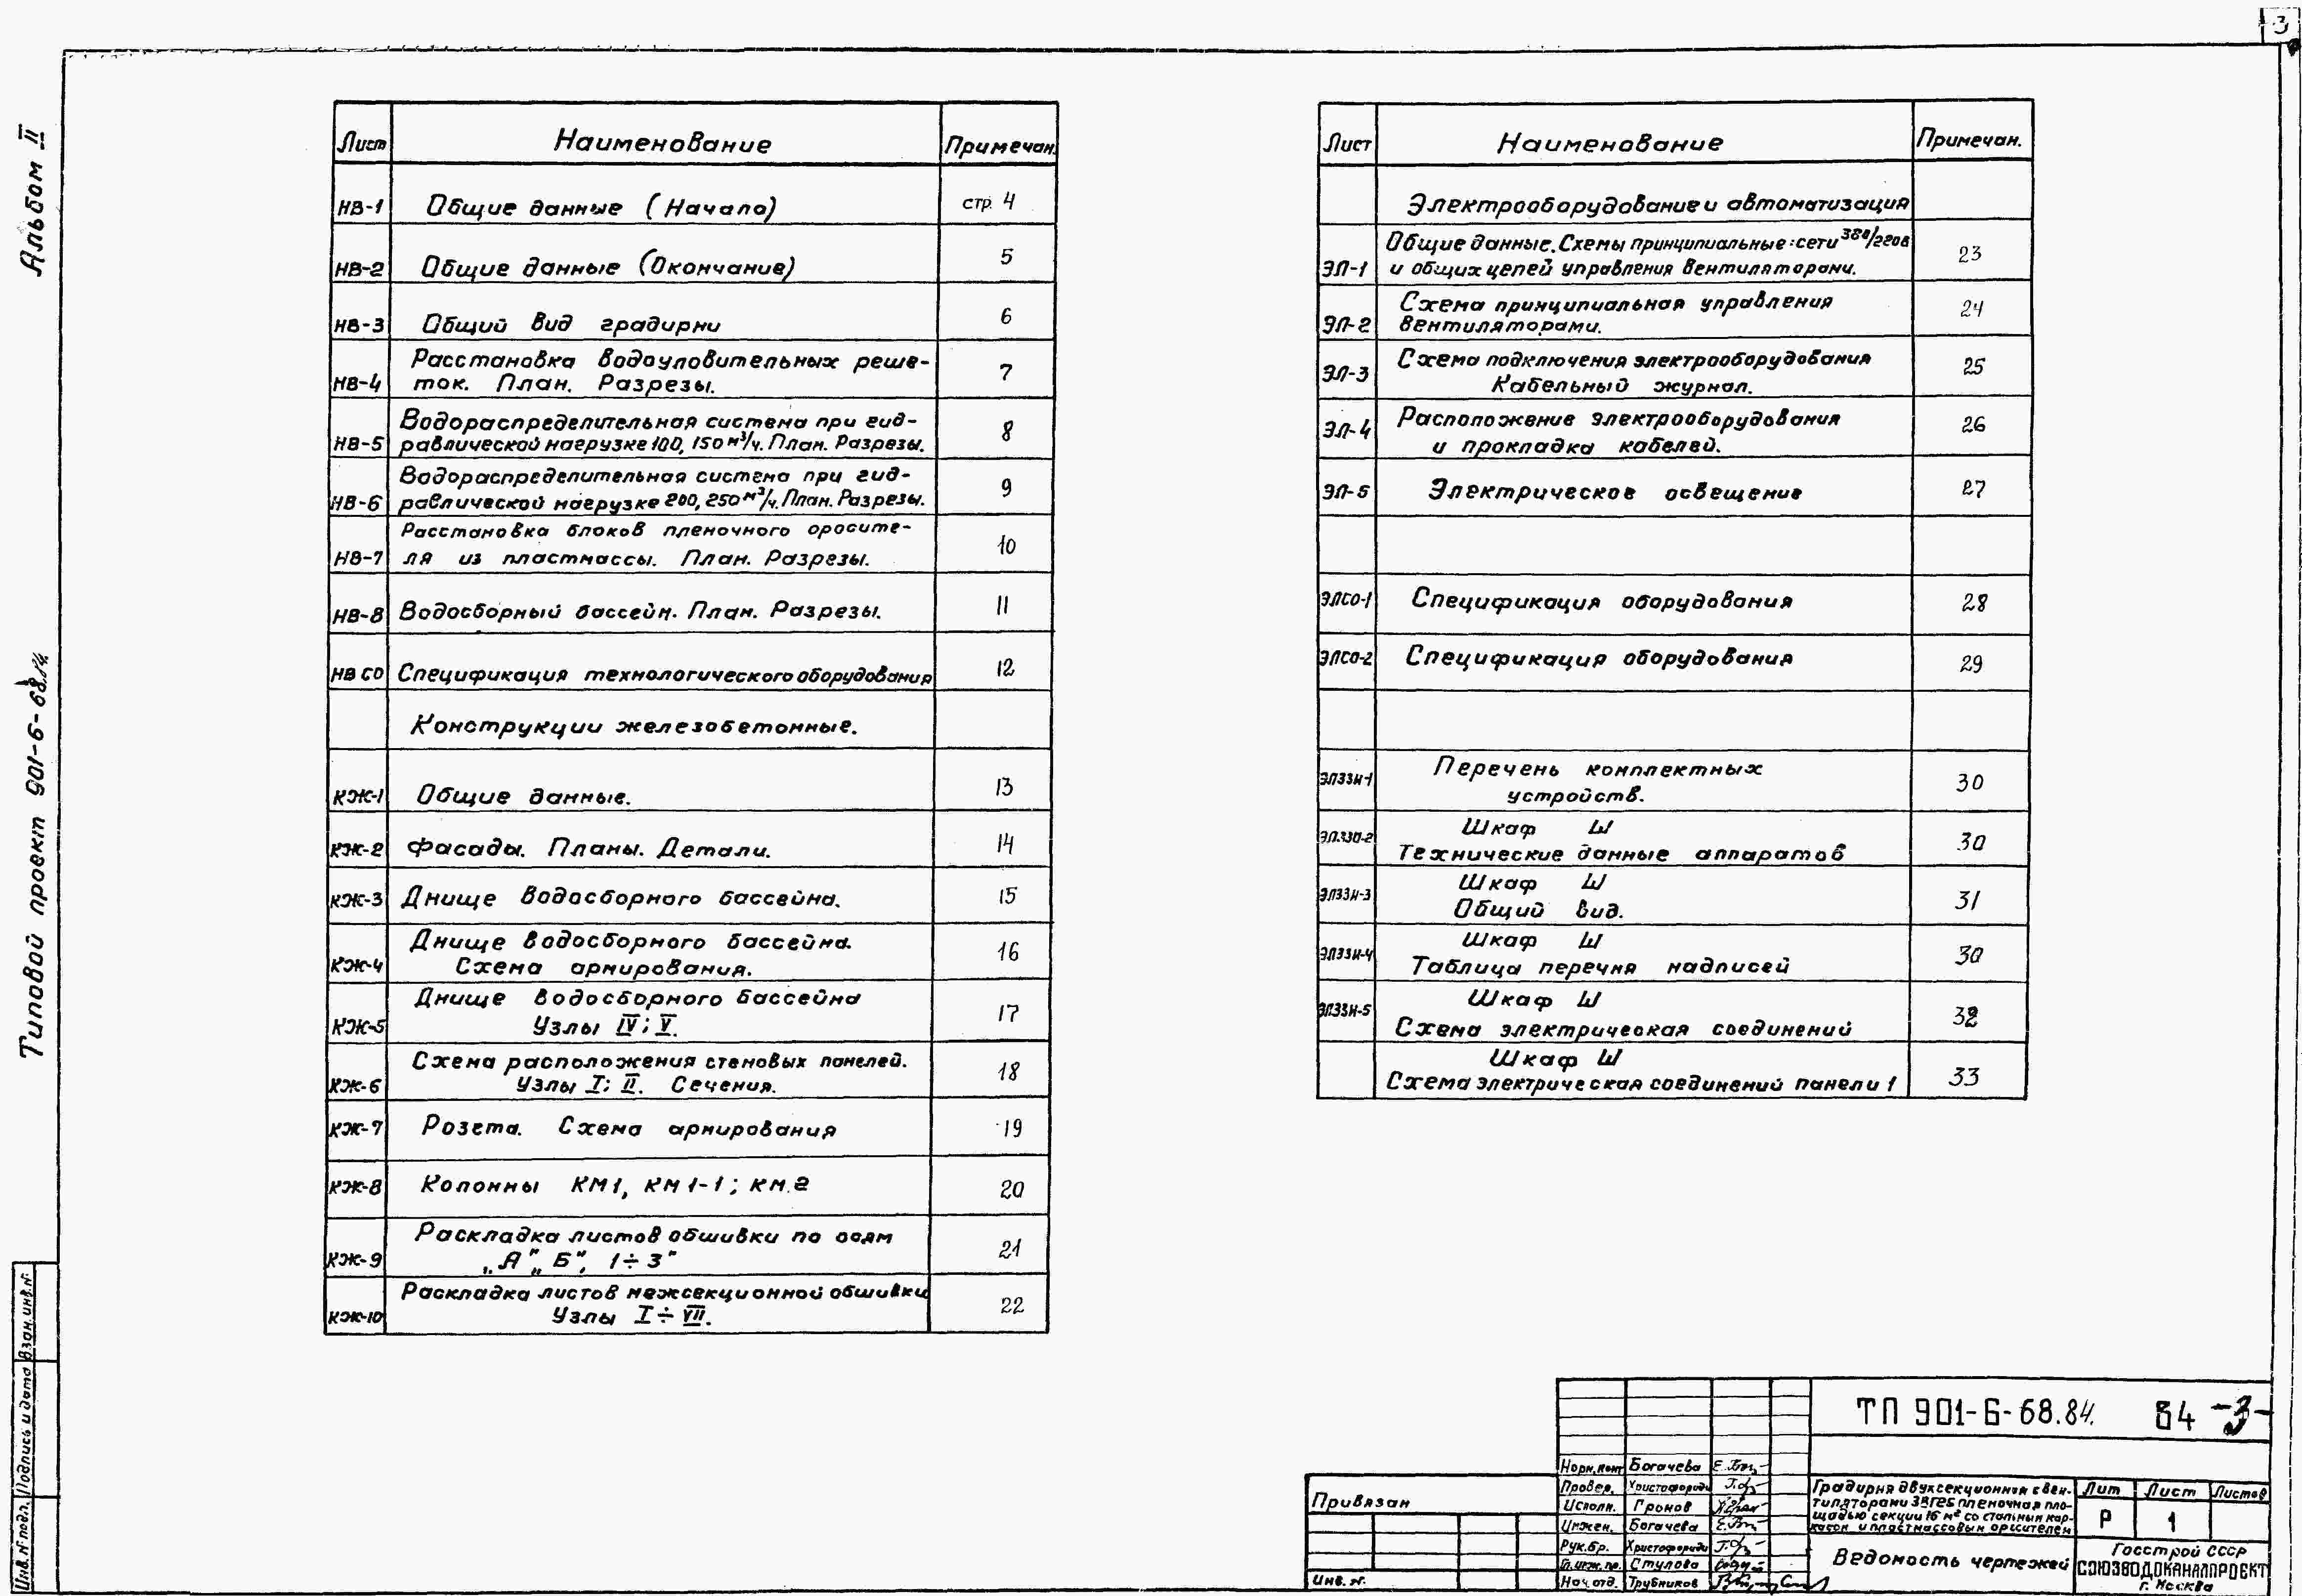 3
Альбом II
Типовой проект 901-6-68.84.
Лист Наименование Примечан.
НВ-1 Общие данные (Начало) стр. 4
НВ-2 Общие данные (Окончание) 5
НВ-3 Общий вид градирни 6
Расстановка водоуловительных реше-
НВ-4 ток. План. Разрезы. 7
Водораспределительная система при гид-
НВ-5 равлической нагрузке 100, 150 м³/ч. План. Разрезы. 8
Водораспределительная система при гид-
НВ-6 равлической нагрузке 200, 250 м³/ч. План. Разрезы. 9
Расстановка блоков пленочного оросите-
НВ-7 ля из пластмассы. План. Разрезы. 10
НВ-8 Водосборный бассейн. План. Разрезы. 11
НВ СО Спецификация технологического оборудования 12
Конструкции железобетонные.
КЖ-1 Общие данные. 13
КЖ-2 Фасады. Планы. Детали. 14
КЖ-3 Днище водосборного бассейна. 15
Днище водосборного бассейна.
КЖ-4 Схема армирования. 16
Днище водосборного бассейна
КЖ-5 Узлы IV; V. 17
Схема расположения стеновых панелей.
КЖ-6 Узлы I; II. Сечения. 18
КЖ-7 Розета. Схема армирования 19
КЖ-8 Колонны КМ1, КМ1-1; КМ.2 20
Раскладка листов обшивки по осям
КЖ-9 „А" „Б", 1÷3" 21
Раскладка листов межсекционной обшивки
КЖ-10 Узлы I÷VII. 22
Лист Наименование Примечан.
Электрооборудование и автоматизация
Общие данные. Схемы принципиальные: сети 380/220В
ЭЛ-1 и общих цепей управления вентиляторами. 23
Схема принципиальная управления
ЭЛ-2 вентиляторами. 24
Схема подключения электрооборудования
ЭЛ-3 Кабельный журнал. 25
Расположение электрооборудования
ЭЛ-4 и прокладка кабелей. 26
ЭЛ-5 Электрическое освещение 27
ЭЛСО-1 Спецификация оборудования 28
ЭЛСО-2 Спецификация оборудования 29
ЭЛЗЗИ-1 Перечень комплектных
устройств. 30
Шкаф Ш
ЭЛ.ЗЗИ-2 Технические данные аппаратов 30
ЭЛЗЗИ-3 Шкаф Ш
Общий вид. 31
ЭЛЗЗИ-4 Шкаф Ш
Таблица перечня надписей 30
ЭЛЗЗИ-5 Шкаф Ш
Схема электрическая соединений 32
Шкаф Ш
Схема электрическая соединений панели 1 33
Инв. № подл. Подпись и дата Взам. инв. №
Привязан
Инв. №
Норм. конт Богачева
Провер. Христофориди
Исполн. Громов
Инжен. Богачева
Рук. бр. Христофориди
Гл. инж. пр. Стулова
Нач. отд. Трубников
ТП 901-6-68.84. В4 -3-
Градирня двухсекционная с вен-
тиляторами 3ВГ25 пленочная пло-
щадью секции 16 м² со стальным кар-
касом и пластмассовым оросителем
Лит Лист Листов
Р 1
Ведомость чертежей
Госстрой СССР
СОЮЗВОДОКАНАЛПРОЕКТ
г. Москва